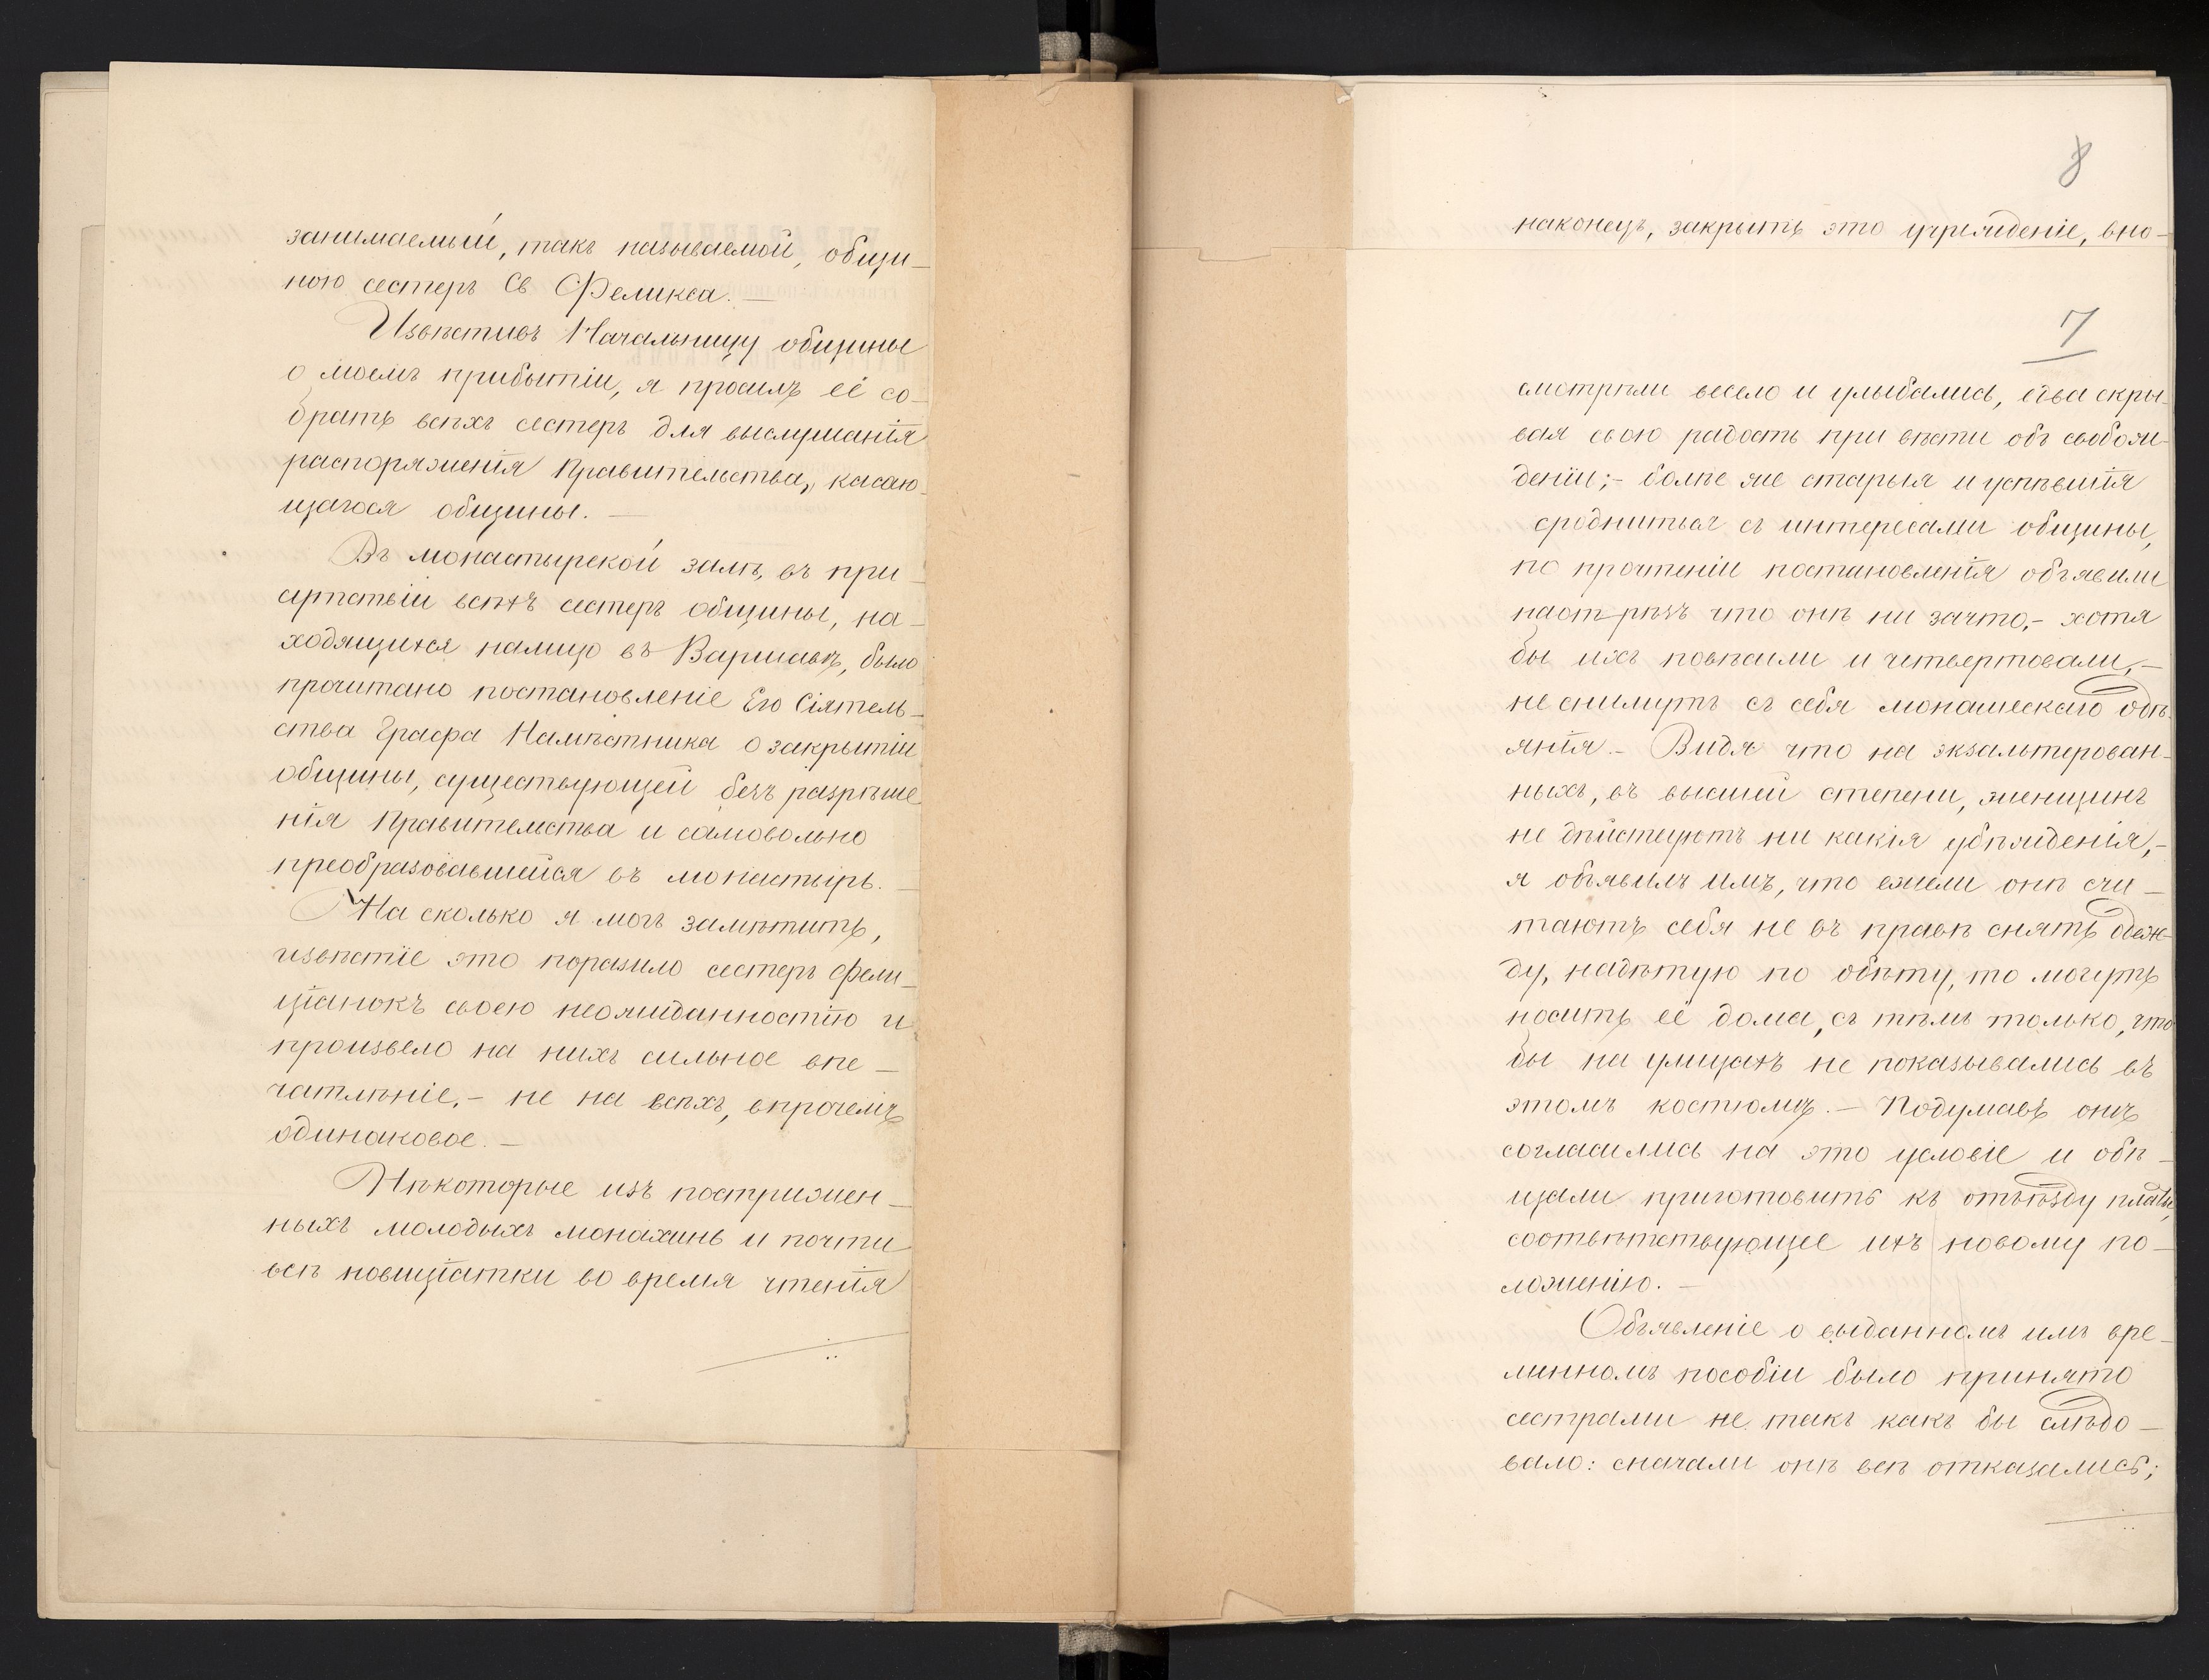 занимаемый, такъ называемой, общи-
ною сестеръ Св Феликса. —
Извѣстивъ Начальницу общины
о моемъ прибытіи, я просилъ её со-
брать всѣхъ сестеръ для выслушанія
распоряженія Правительства, касаю-
щагося общины. —
Въ монастырской залѣ, въ при-
сутствіи всѣхъ сестеръ общины, на-
ходящихся налицо въ Варшавѣ, было
прочитано постановленіе Его Сіятель-
ства Графа Намѣстника о закрытіи
общины, существующей безъ разрѣше-
нія Правительства и самовольно
преобразовавшейся въ монастырь. —
На сколько я могъ замѣтить,
извѣстіе это поразило сестеръ фели-
ціанокъ своею неожиданностію и
произвело на нихъ сильное впе-
чатлѣніе, - не на всѣхъ, впрочемъ
одинаковое. —
Нѣкоторые изъ постриженныхъ-
ныхъ молодыхъ монахинь и почти
всѣ новиціатки во время чтенія
8
наконецъ, закрыть это учрежденіе, вно-
7
смотрѣли весело и улыбались, едва скры-
вая свою радость при вѣсти объ свобож-
деніи; - болѣе же старыя и успѣвшія
сродниться съ интересами общины,
по прочтеніи постановленія объявили
наотрѣзъ что онѣ ни зачто, - хотя
бы ихъ повѣсили и четвертовали, -
не снимутъ съ себя монашескаго одѣ-
янія. - Видя что на экзальтирован-
ныхъ, въ высшей степени, женщинъ
не дѣйствуютъ ни какія убѣжденія, -
я объявилъ имъ, что ежели онѣ счи-
таютъ себя не въ правѣ снять одеж-
ду, надѣтую по обѣту, то могутъ
носить её дома, съ тѣмъ только, что
бы на улицахъ не показывались въ
этомъ костюмѣ. - Подумавъ онѣ
согласились на это условіе и обѣ-
щали приготовить къ отъѣзду платье,
соотвѣтствующее ихъ новому по-
ложенію. -
Объявленіе о выданномъ имъ вре-
минномъ пособіи было принято
сестрами не такъ какъ бы слѣдо-
вало: сначали онѣ всѣ отказались;